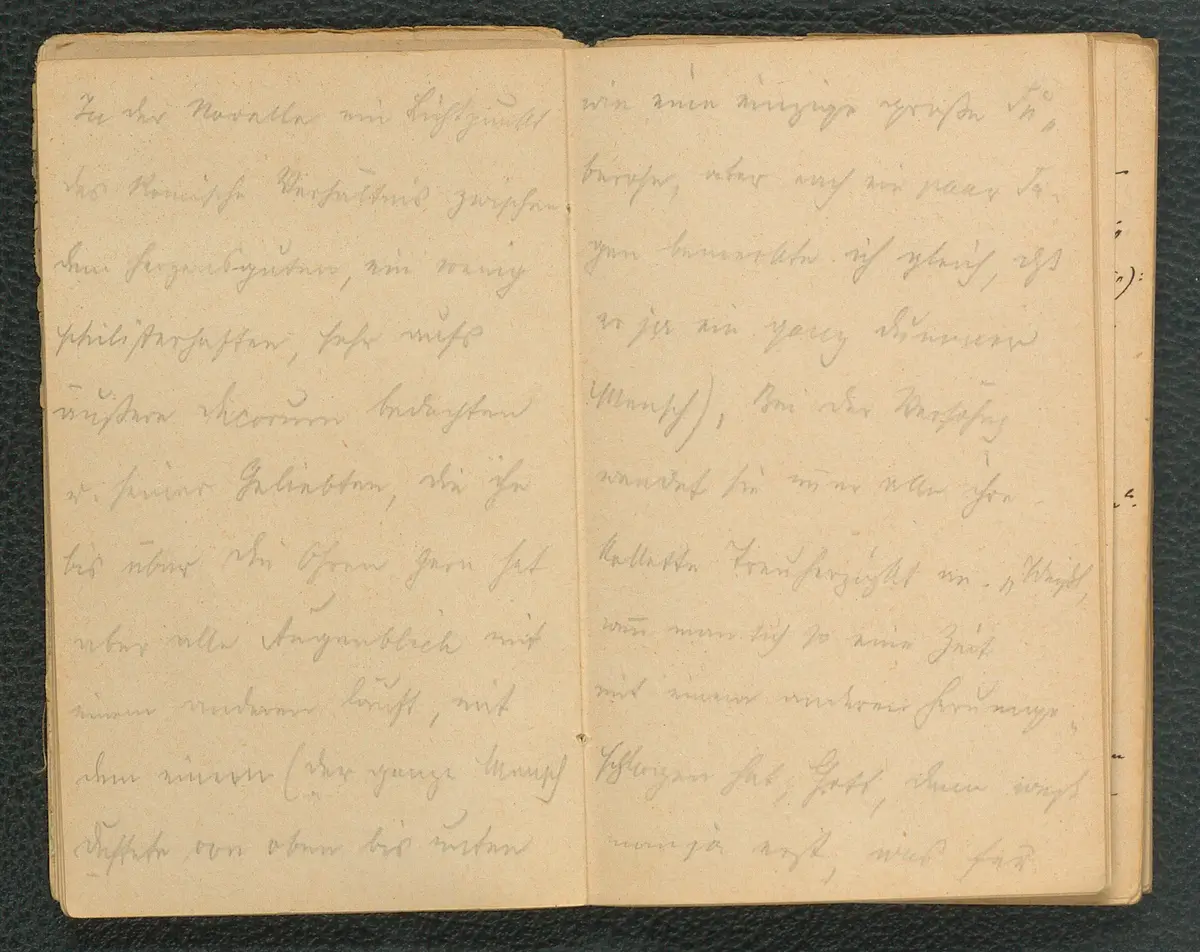 In der Novelle ein Lichtpunkt
das komische Verhältnis zwischen
dem herzensguten, ein wenig
philisterhaften, sehr aufs
äußere decorum bedachten
u. seiner Geliebten, die ihn
bis über die Ohren gern hat
aber alle Augenblick mit
einem anderen läuft, mit
dem einem (der ganze Mensch
duftete von oben bis unten
wie eine einzige große Tu„
berose, aber nach ein paar Ta-
gen bemerkte ich gleich, daß
er ja ein ganz dummer
Mensch), Bei der Versöhng
wendet sie immer alle ihre
kokette Treuherzigkt an. „Weißt,
wenn man sich so eine Zeit
mit einem anderen herumge„
schlagen hat, Gott, dann weiß
man ja erst, was für